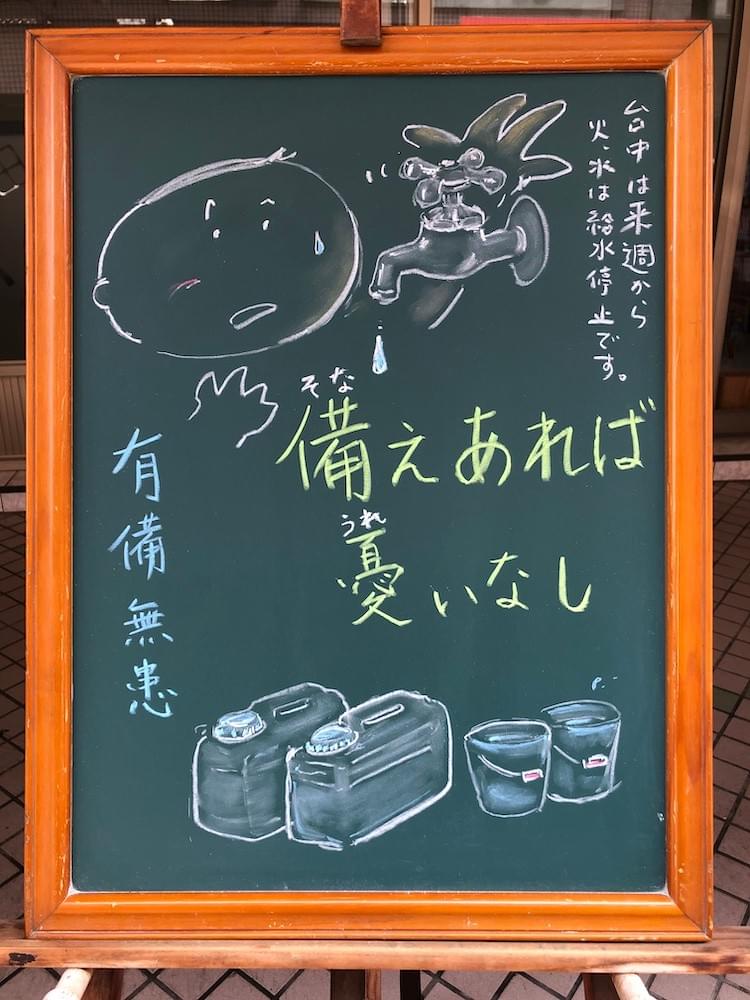 台中は来週から
火、水は給水停止です。
そな
備えあれば
うれ
憂いなし
有備無患